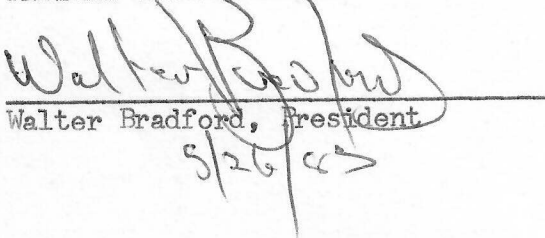 Walter Bradford
Walter Bradford, President
5/26/83